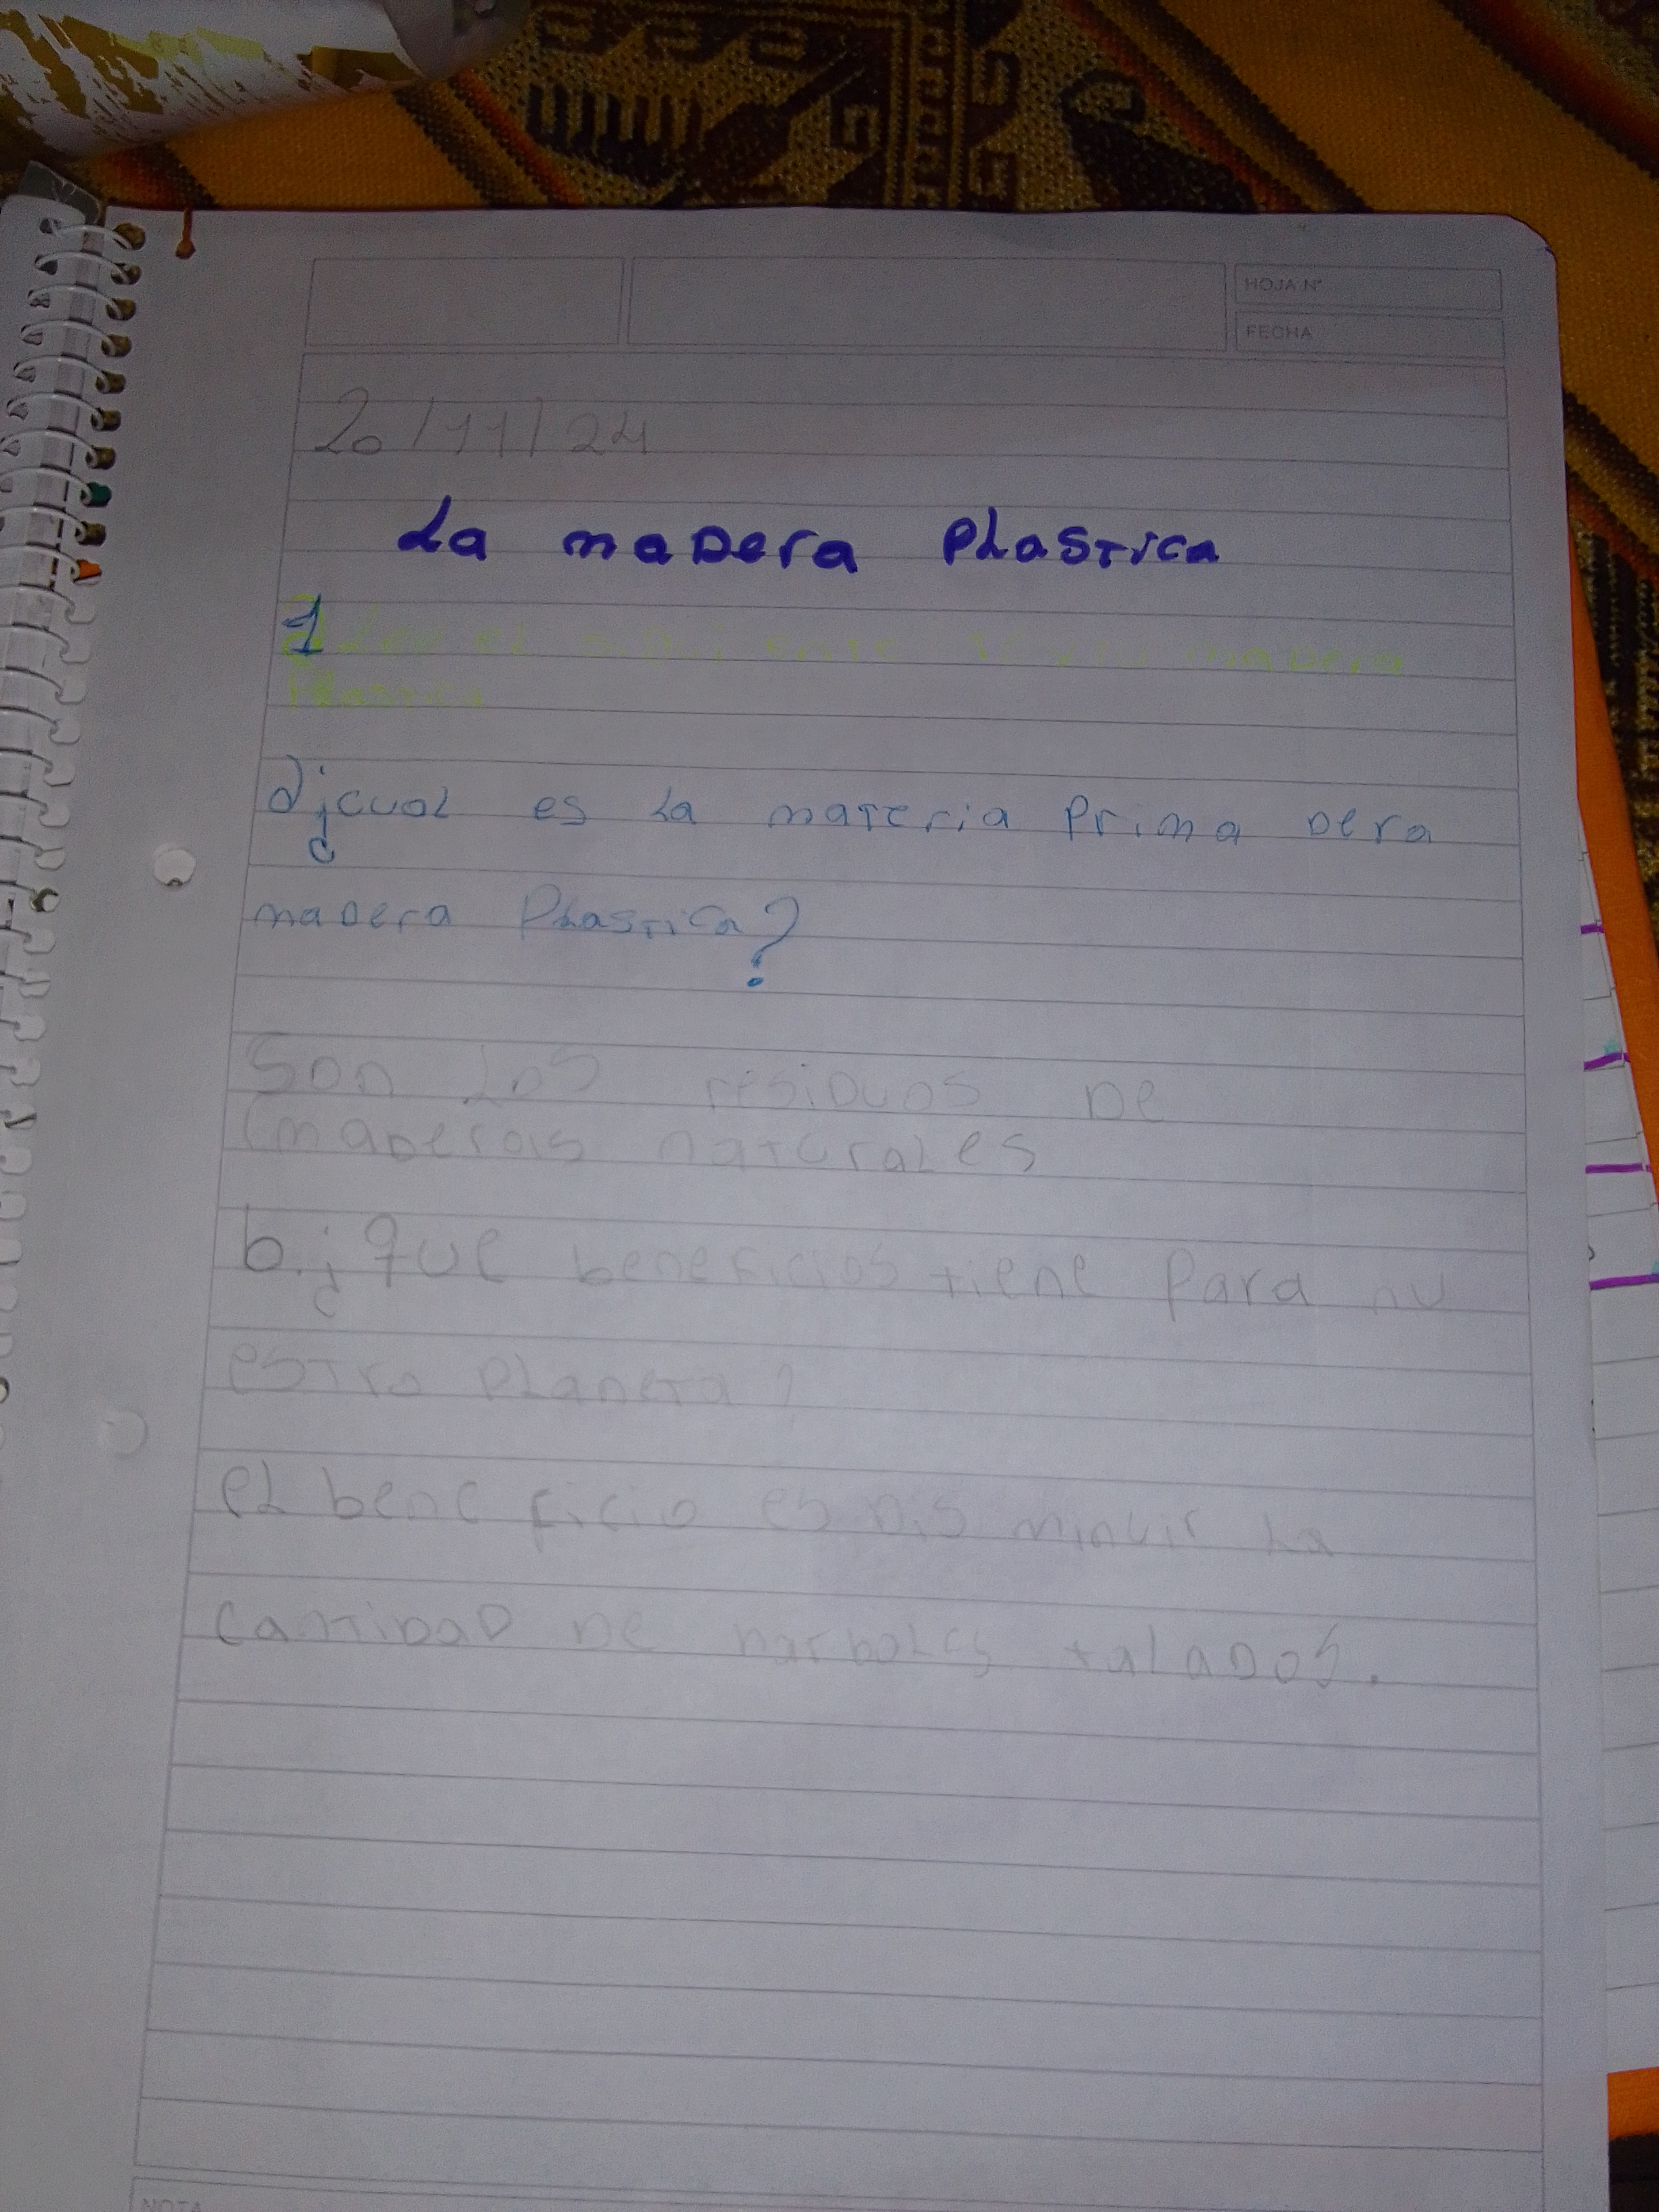 HOJA N°
FECHA
20/11/24
La maDera PLasTica
1 Lee el siguiente texto maDera
PLasTica
a ¿cual es La maTeria Prima Dera
maDera PLasTica?
Son Los resiDuos De
maDeras naTuraLes
b. ¿que beneficios tiene Para nu
esTro PLaneTa?
eL beneficio es Dis minuir La
canTiDaD De harboLes talaDos.
NOTA